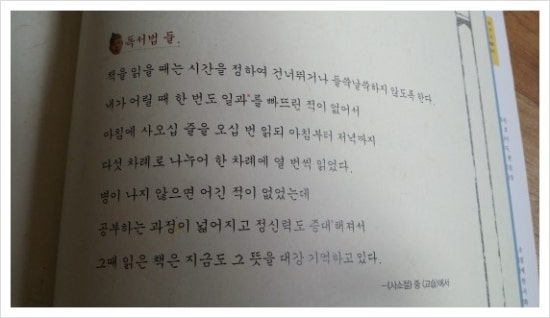 독서법 둘.
책을 읽을 때는 시간을 정하여 건너뛰거나 들쑥날쑥하지 않도록 한다.
내가 어릴 때 한 번도 일과*를 빠뜨린 적이 없어서
아침에 사오십 줄을 오십 번 읽되 아침부터 저녁까지
다섯 차례로 나누어 한 차례에 열 번씩 읽었다.
병이 나지 않으면 어긴 적이 없었는데
공부하는 과정이 넓어지고 정신력도 증대*해져서
그때 읽은 책은 지금도 그 뜻을 대강 기억하고 있다.
-《사소절》 중 〈교습〉에서